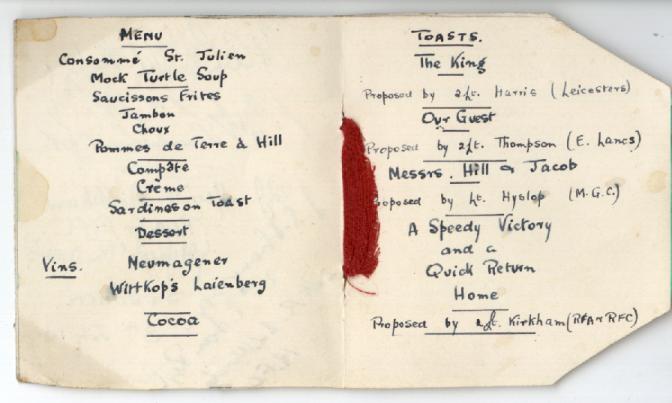 MENU
Consommé St. Julien
Mock Turtle Soup
Saucissons Frites
Jambon
Choux
Pommes de Terre à Hill
Compôte
Crème
Sardines on Toast
Dessert
Vins. Neumagener
Wittkop's Laienberg
Cocoa
TOASTS.
The King
Proposed by 2/Lt. Harris (Leicesters)
Our Guest
Proposed by 2/Lt. Thompson (E. Lancs)
Messrs. Hill & Jacob
Proposed by Lt. Hyslop (M.G.C.)
A Speedy Victory
and a
Quick Return
Home
Proposed by 2/Lt. Kirkham (RFA & RFC)